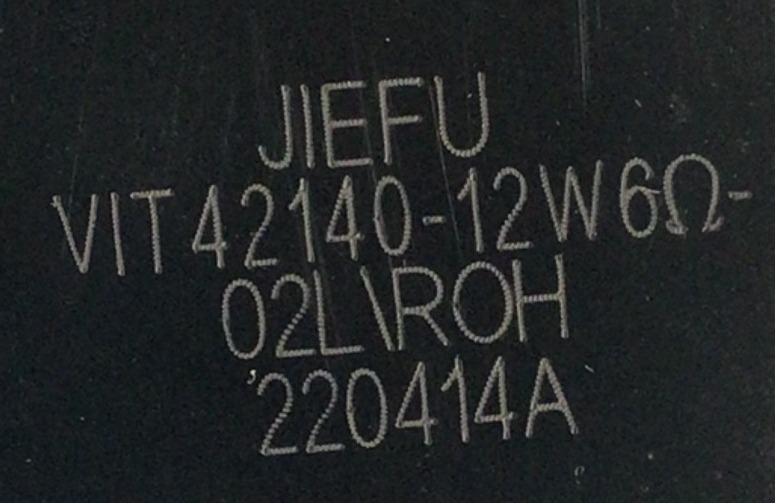 JIEFU
VIT42140-12W6Ω-
02L\ROH
220414A